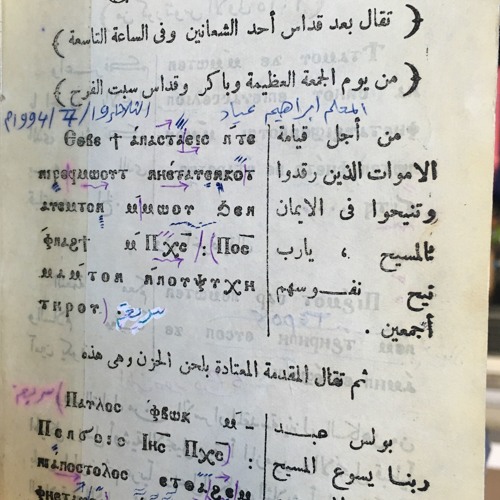 ( تقال بعد قداس أحد الشعانين وفى الساعة التاسعة )
( من يوم الجمعة العظيمة وباكر وقداس سبت الفرح )
المعلم ابراهيم عياد الثلاثاء 1994م
Ⲉⲑⲃⲉ ϯ ⲁ̀ⲛⲁⲥⲧⲁⲥⲓⲥ ⲛ̀ⲧⲉ
ⲛⲓⲣⲉϥⲙⲱⲟⲩⲧ ⲛⲏⲉ̀ⲧⲁⲩⲉⲛⲕⲟⲧ
ⲁⲩⲉⲙⲧⲟⲛ ⲙ̀ⲙⲱⲟⲩ ϧⲉⲛ
ⲫ̀ⲛⲁϩϯ ⲙ̀ Ⲡⲭ̅ⲥ̅ : Ⲡⲟ̅ⲥ̅
ⲙⲁⲙ̀ⲧⲟⲛ ⲛ̀ⲛⲟⲩⲯⲩⲭⲏ
ⲧⲏⲣⲟⲩ . سريعة
من أجل قيامة
الاموات الذين رقدوا
وتنيحوا فى الايمان
بالمسيح ، يارب
نيح نفوسهم
أجمعين .
ثم تقال المقدمة المعتادة بلحن الحزن وهى هذه
سريعة
Ⲡⲁⲩⲗⲟⲥ ⲫ̀ⲃⲱⲕ ⲙ̀-
Ⲡⲉⲛϭⲟⲓⲥ Ⲓⲏ̅ⲥ̅ Ⲡⲭ̅ⲥ̅ :
ⲡⲓⲁ̀ⲡⲟⲥⲧⲟⲗⲟⲥ ⲉⲧⲑⲁϩⲉⲙ
بولس عبد
ربنا يسوع المسيح